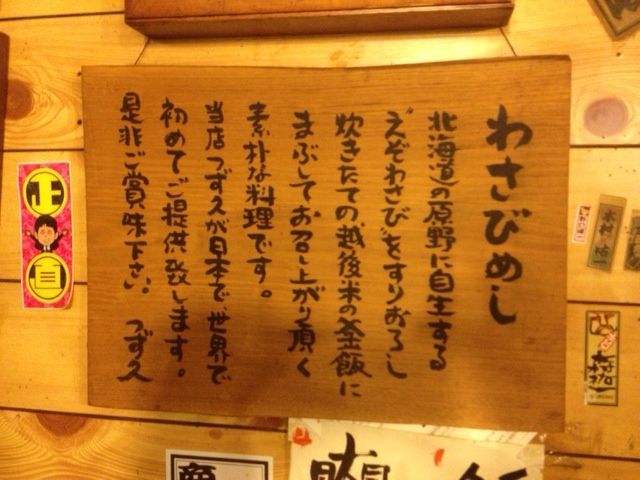 わさびめし
北海道の原野に自生する
"えぞわさび"をすりおろし
炊きたての越後米の釜飯に
まぶしてお召し上がり頂く
素朴な料理です。
当店つず久が日本で、世界で
初めてご提供致します。
是非ご賞味下さい。 つず久
正
直